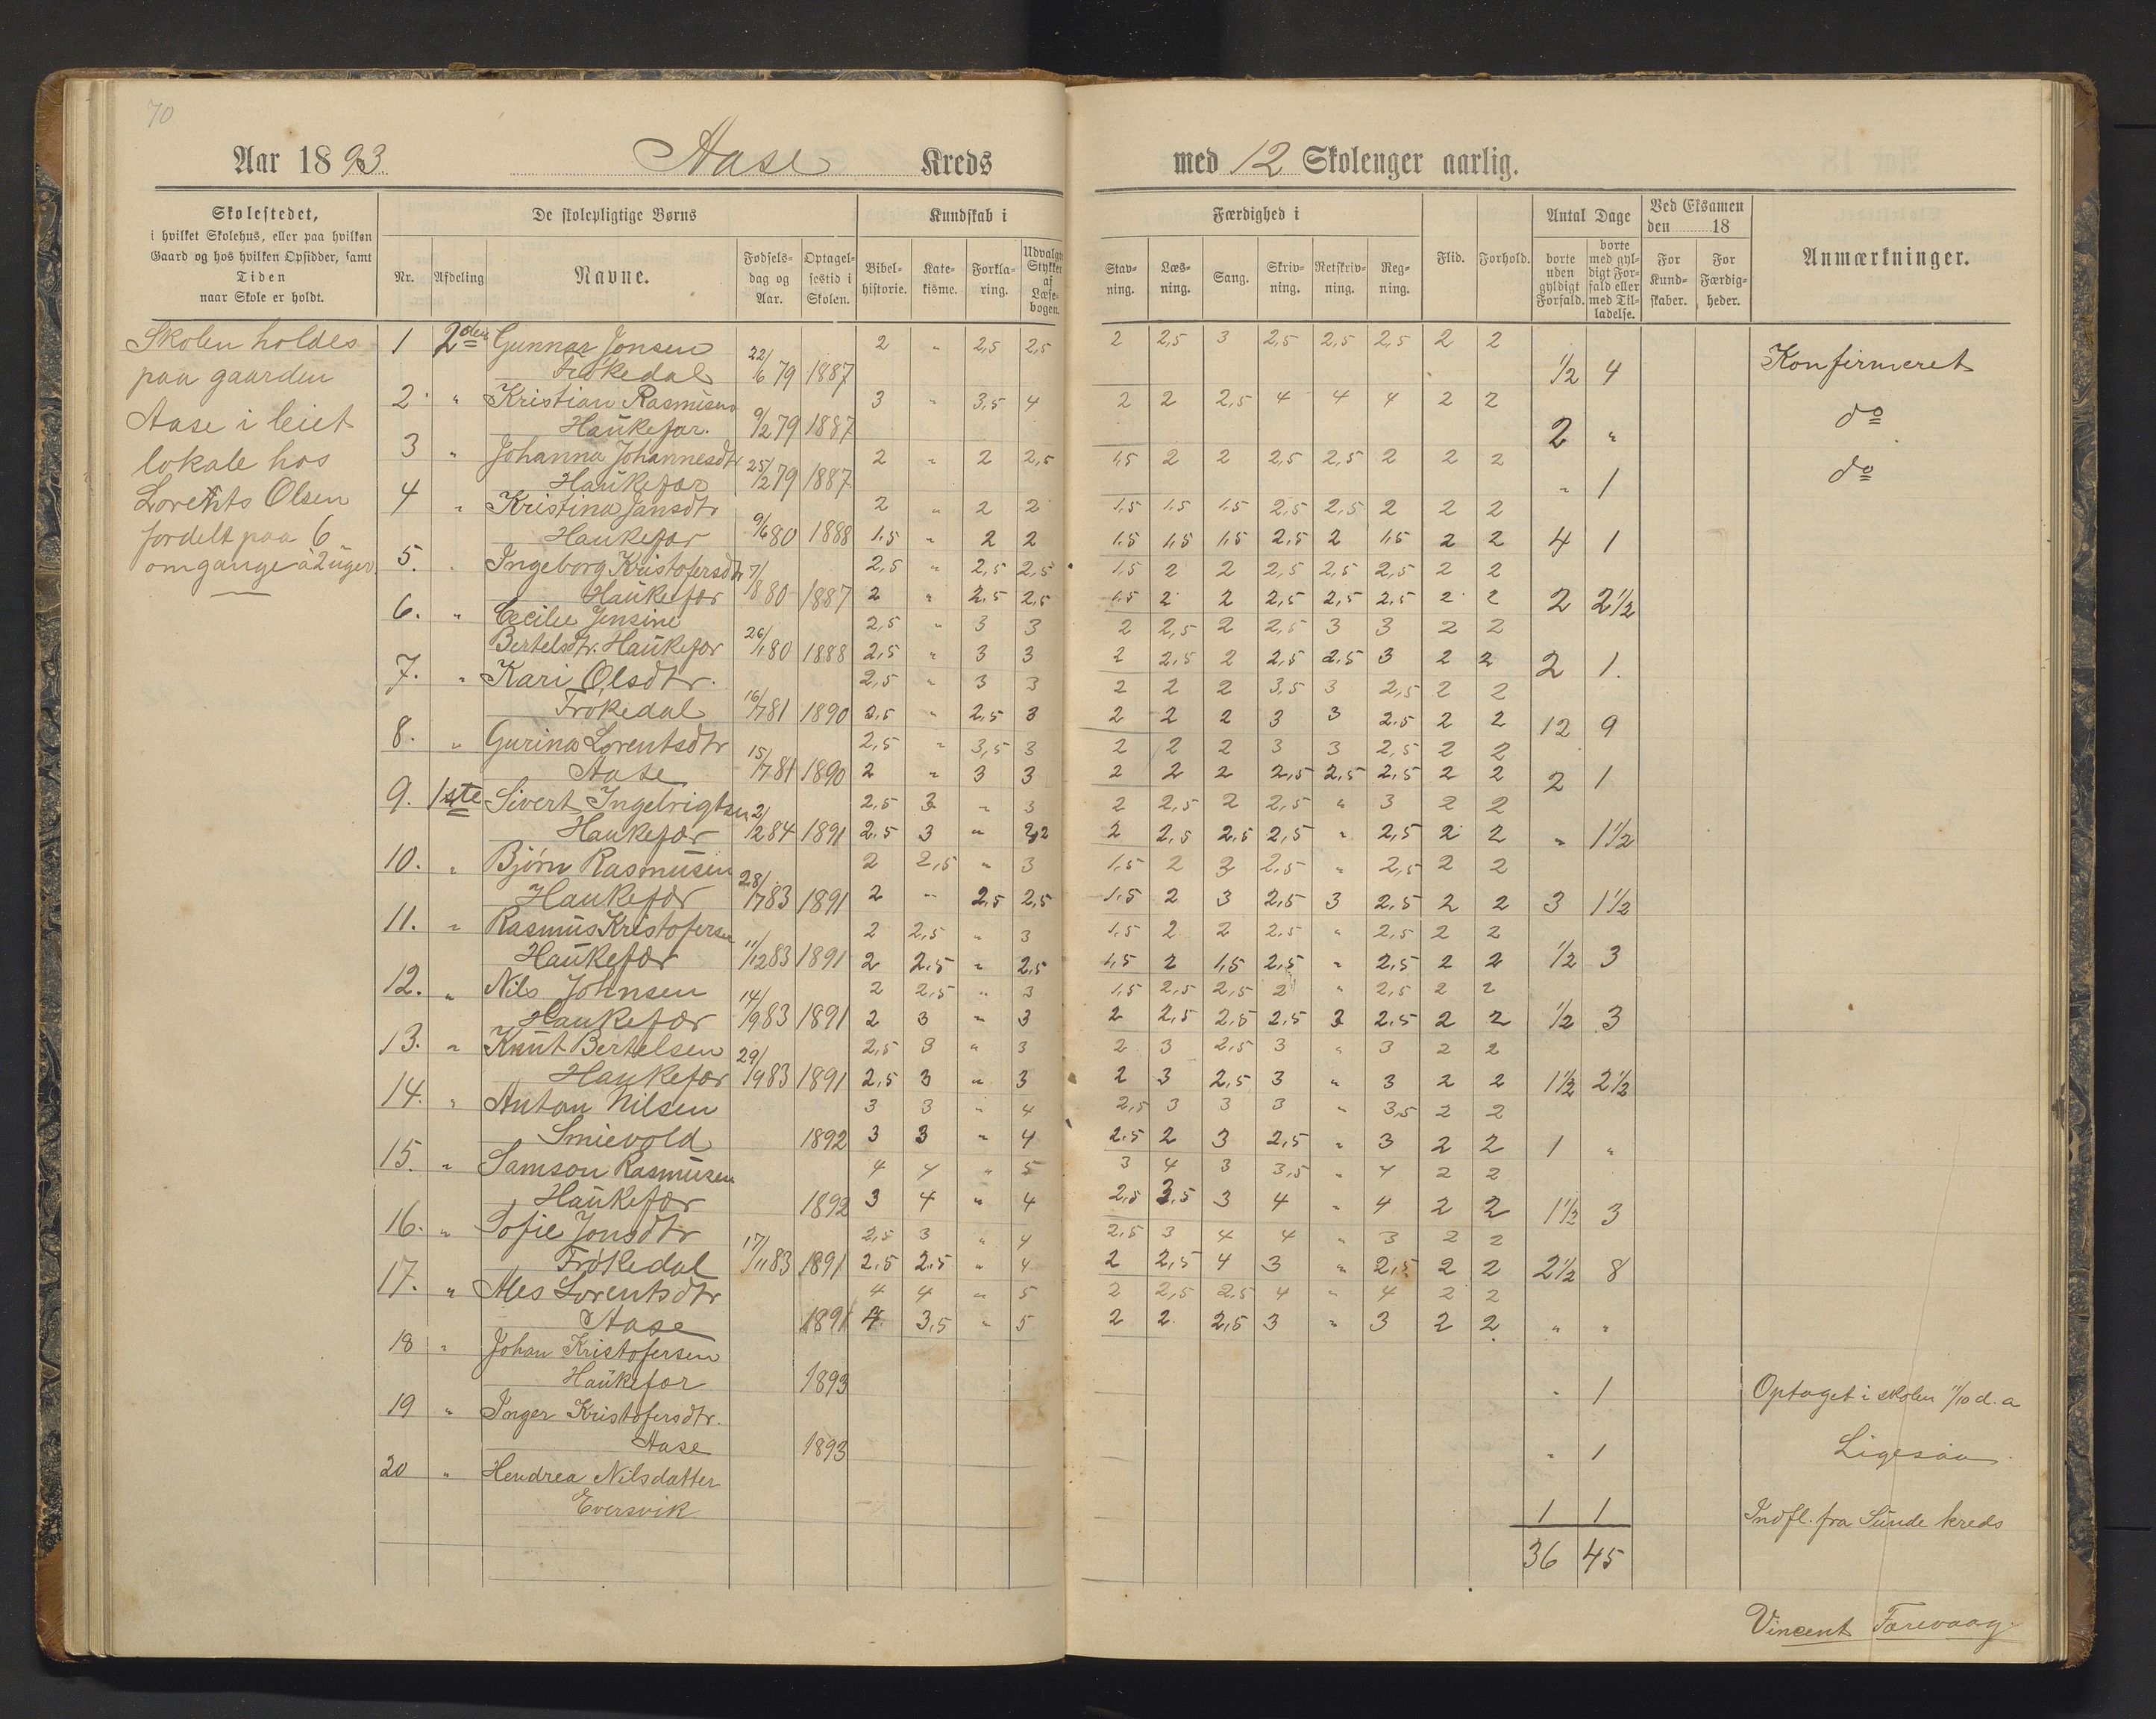 70
Aar 1893. Aase Kreds
med 12 Skolenger aarlig.
Skolestedet,
i hvilket Skolehus, eller paa hvilken
Gaard og hos hvilken Opsidder, samt
Tiden
naar Skole er holdt.
De skolepligtige Børns
Nr. Afdeling Navne. Fødselsdag og Aar. Optagelsestid i Skolen.
Kundskab i
Bibelhistorie. Katekisme. Forklaring. Udvalgte Stykker af Læsebogen.
Færdighed i
Stavning. Læsning. Sang. Skrivning. Retskrivning. Regning. Flid. Forhold.
Antal Dage
borte uden gyldigt Forfald. borte med gyldigt Forfald eller med Tilladelse.
Ved Eksamen
den 18
For Kundskaber. For Færdigheder.
Anmærkninger.
Skolen holdes
paa gaarden
Aase i leiet
lokale hos
Lorents Olsen
fordelt paa 6
omgange à 2 uger
1 2den Gunnar Jonsen 2 " 2,5 2,5 2 2,5 3 2,5 2,5 2,5 2 2
Frøkedal 22/6 79 1887 1/2 4 Konfirmeret
2 " Kristian Rasmusen 3 " 3,5 4 2 2 2,5 4 4 4 2 2
Haukefær. 9/2 79 1887 2 " do
3 " Johanna Johannesdtr 2 " 2 2,5 1,5 2 2 2,5 2,5 2 2 2
Haukefær 25/2 79 1887 " 1 do
4 " Kristina Jansdtr 2 " 2 2 1,5 1,5 1,5 2,5 2,5 2 2 2
Haukefær 9/6 80 1888 1,5 " 2 2 1,5 1,5 1,5 2,5 2 1,5 2 2 4 1
5. " Ingeborg Kristofersdtr 2,5 " 2,5 2,5 1,5 2 2 2,5 2,5 2,5 2 2
Haukefær 7/8 80 1887 2 " 2,5 2,5 1,5 2 2 2,5 2,5 2,5 2 2 2 2 1/2
6. " Cecilie Jensine 2,5 " 3 3 2 2,5 2 2,5 3 3 2 2
Bertelsdtr. Haukefær 26/1 80 1888 2,5 " 3 3 2 2,5 2 2,5 2,5 3 2 2 2 1.
7. " Kari Olsdtr. 2,5 " 3 3 2 2 2 3,5 3 2,5 2 2
Frøkedal 16/7 81 1890 2,5 " 2,5 3 2 2 2 3 3 2,5 2 2 12 9
8. " Gurina Lorentsdtr 2,5 " 3,5 3 2 2 2 3 3 2,5 2 2
Aase 15/7 81 1890 2 " 3 3 2 2 2 2,5 2,5 2,5 2 2 2 1
9. 1ste Sivert Ingebrigtsen 2,5 3 " 3 2 2,5 2 2,5 " 3 2 2
Haukefær 2/2 84 1891 2,5 3 " 2 2,5 2,5 2,5 " 2,5 2 2 " 1 1/2
10. " Bjørn Rasmusen 2 2,5 " 3 1,5 2 3 2,5 " 2,5 2 2
Haukefær 28/7 83 1891 2 " 2,5 2,5 1,5 2 3 2,5 3 2,5 2 2 3 1 1/2
11. " Rasmus Kristofersen 2 2,5 " 3 1,5 2 2 2,5 " 2,5 2 2
Haukefær 11/12 83 1891 2 2,5 " 2,5 1,5 2 1,5 2,5 " 2,5 2 2 1/2 3
12. " Nils Johnsen 2 2,5 " 3 1,5 2,5 2,5 2 " 2,5 2 2
Haukefær 14/9 83 1891 2 3 " 3 2 2,5 2,5 2,5 3 2,5 2 2 1/2 3
13. " Knut Bertelsen 2,5 3 " 3 2 3 2,5 3 " 3 2 2
Haukefær 29/9 83 1891 2,5 3 " 3 2 3 2,5 3 " 3 2 2 1 1/2 2 1/2
14. " Anton Nilsen 3 3 " 4 2,5 3 3 3 " 3,5 2 2
Smievold 1892 3 3 " 4 2,5 2 3 2,5 " 3 2 2 1 "
15. " Samson Rasmusen 4 4 " 5 3 4 3 3,5 " 4 2 2
Haukefær 1892 3 4 " 4 2,5 3,5 3 4 " 4 2 2 1 1/2 3
16. " Sofie Jonsdtr 2,5 3 " 4 2,5 3 4 4 " 3 2 2
Frøkedal 17/11 83 1891 2,5 2,5 " 4 2 2,5 4 3 " 2,5 2 2 2 1/2 8
17. " Lorentsdtr 4 4 " 5 2 2,5 2,5 4 " 4 2 2
Aase 1891 4 3,5 " 5 2 2 2,5 3 " 3 2 2 " "
18 " Johan Kristofersen
Haukefær 1893 " 1 Optaget i skolen 11/10 d. a
19 " Inger Kristofersdtr.
Aase 1893 " 1 Ligesaa
20 " Hendrea Nilsdatter
Eversvik 1 1 Indfl. fra Sunde kreds
36 45
Vincent Farevaag